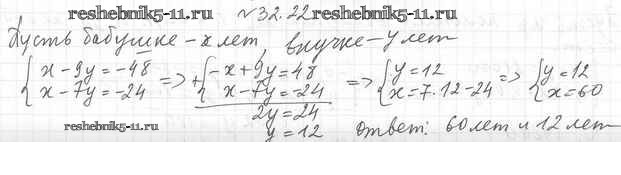 reshebnik5-11.ru №32.22 reshebnik5-11.ru
Пусть бабушке - x лет, внучке - y лет
{x - 9y = -48 => +{-x + 9y = 48 => {y = 12 => {y = 12
{x - 7y = -24 {x - 7y = -24 {x = 7·12 - 24 {x = 60
2y = 24
reshebnik5-11.ru y = 12 Ответ: 60 лет и 12 лет